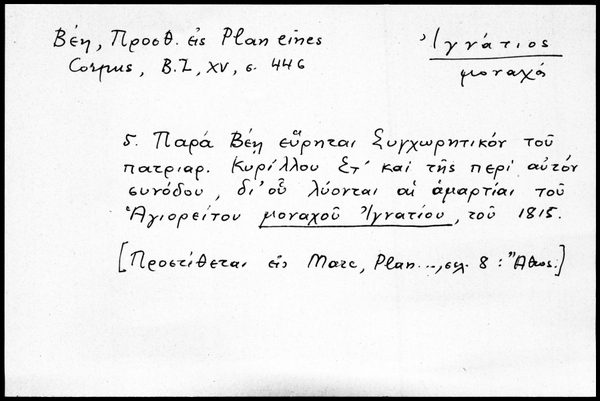 Βέη, Προσθ. εἰς Plan eines
Corpus, B.Z, XV, σ. 446
Ἰγνάτιος
μοναχός
5. Παρά Βέῃ εὕρηται Συγχωρητικόν τοῦ
πατριαρ. Κυρίλλου Στ´ καί τῆς περί αὐτόν
συνόδου, δι' οὗ λύονται αἱ ἁμαρτίαι τοῦ
Ἁγιορείτου μοναχοῦ Ἰγνατίου, τοῦ 1815.
[Προστίθεται εἰς Marc, Plan..., σελ. 8: "Ἄθως.]